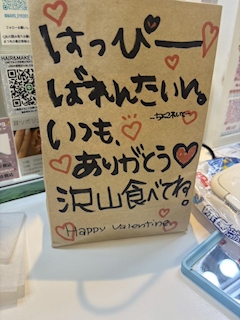 はっぴー
ばれんたいん。
いつも、
ありがとう♥
沢山食べてね。
Happy Valentine
HAIR&MAKE